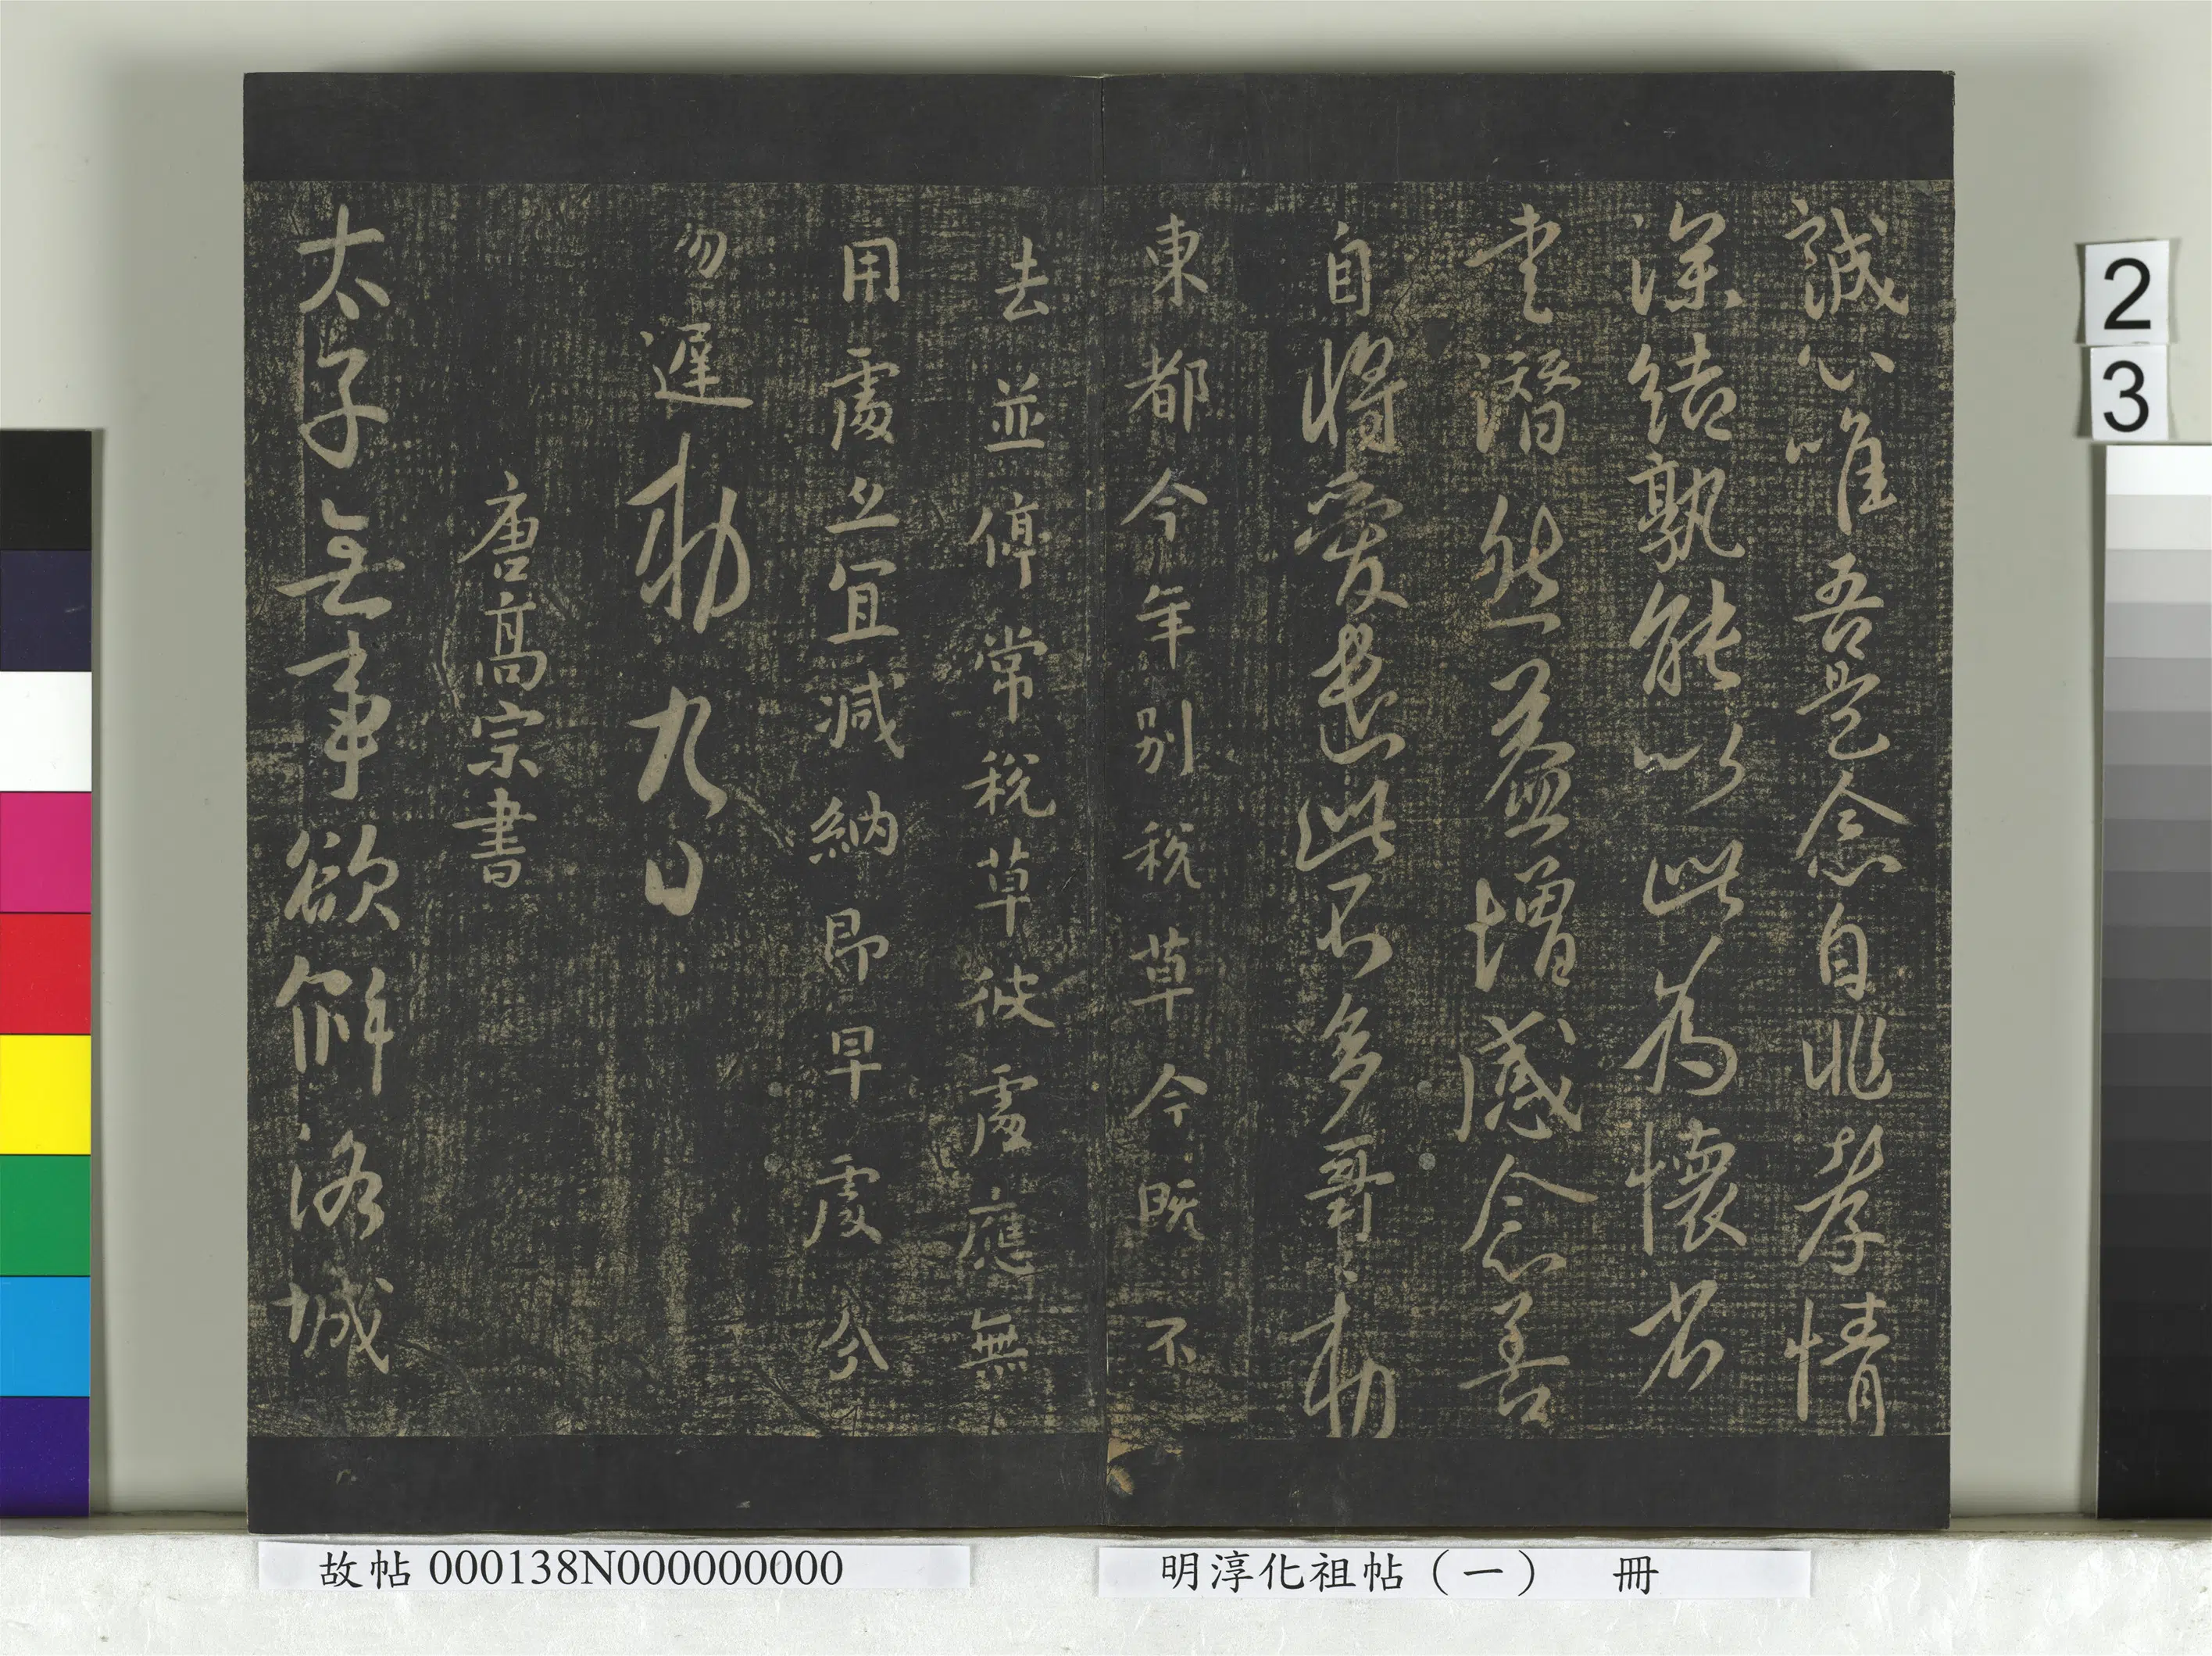 誠心唯吾是念自非孝情
深結孰能以此為懷者
書潛然益增感念善
自將愛遣此不多哥哥勅
東都今年別稅草今既不
去並停常稅草彼處應無
用處並宜減納即早處分
勿遲勅九日
唐高宗書
太子無事欲解洛城
故帖000138N000000000
明淳化祖帖（一）　冊
2
3